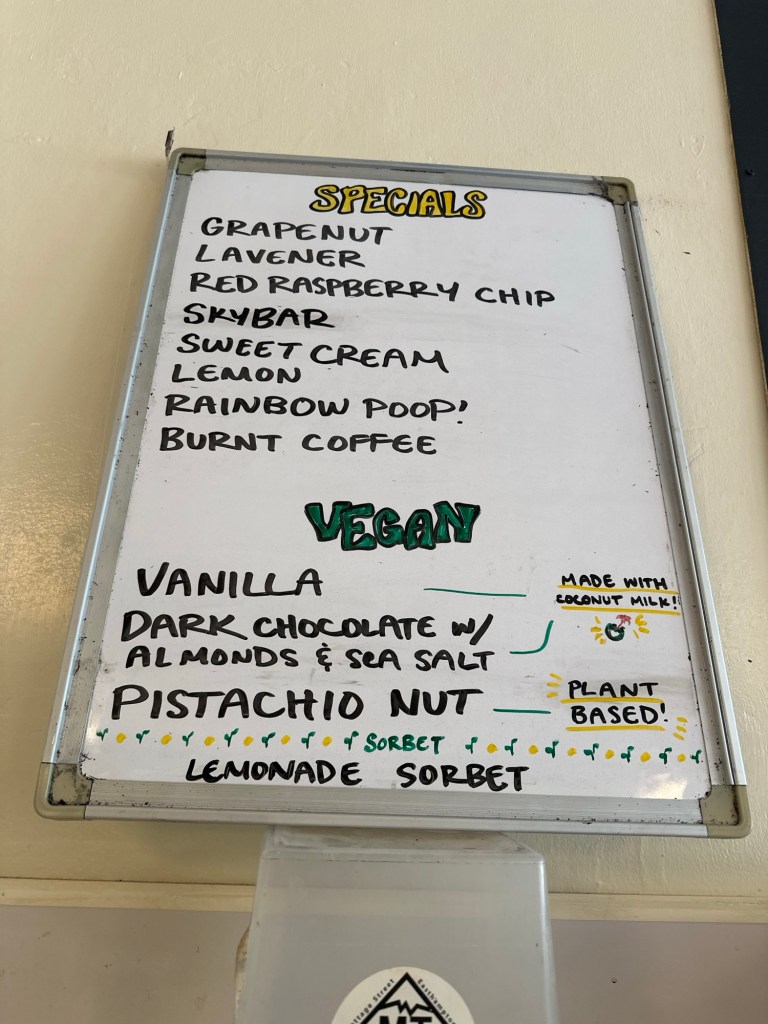 SPECIALS
GRAPENUT
LAVENER
RED RASPBERRY CHIP
SKYBAR
SWEET CREAM
LEMON
RAINBOW POOP!
BURNT COFFEE
VEGAN
VANILLA
MADE WITH
COCONUT MILK!
DARK CHOCOLATE W/
ALMONDS & SEA SALT
PISTACHIO NUT
PLANT
BASED!
SORBET
LEMONADE SORBET
Street Easthampton
MT